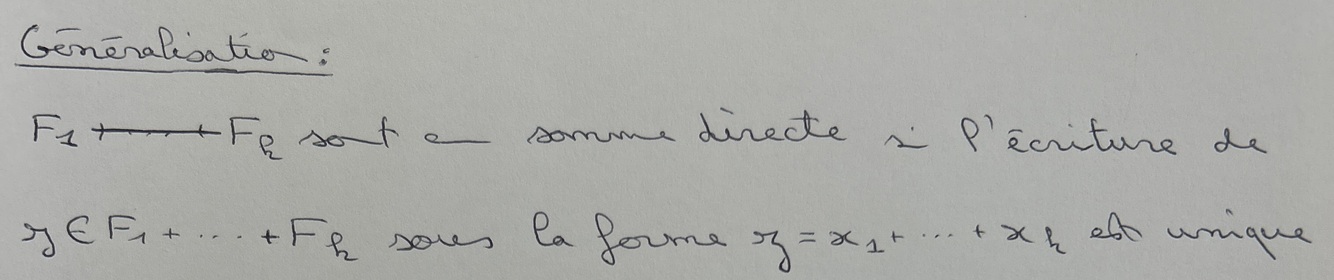 Généralisation :
F₁ + ... + Fₖ sont en somme directe si l'écriture de
z ∈ F₁ + ... + Fₖ sous la forme z = x₁ + ... + xₖ est unique